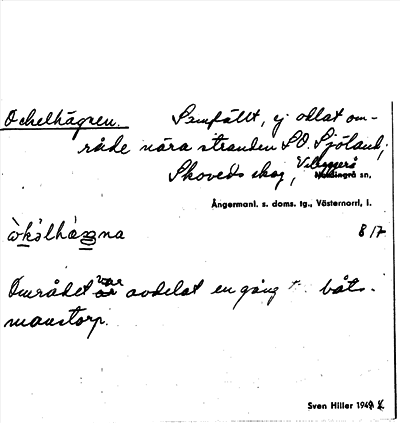 Ockelhägnen. Samfällt, ej odlat om-
råde nära stranden S.O. Sjöland,
Skoveds skog, Vibyggerå sn.
Ångermanl. s. doms. tg., Västernorrl. l.
8/7
Området var avdelat en gång t. båts-
manstorp.
Sven Hiller 194